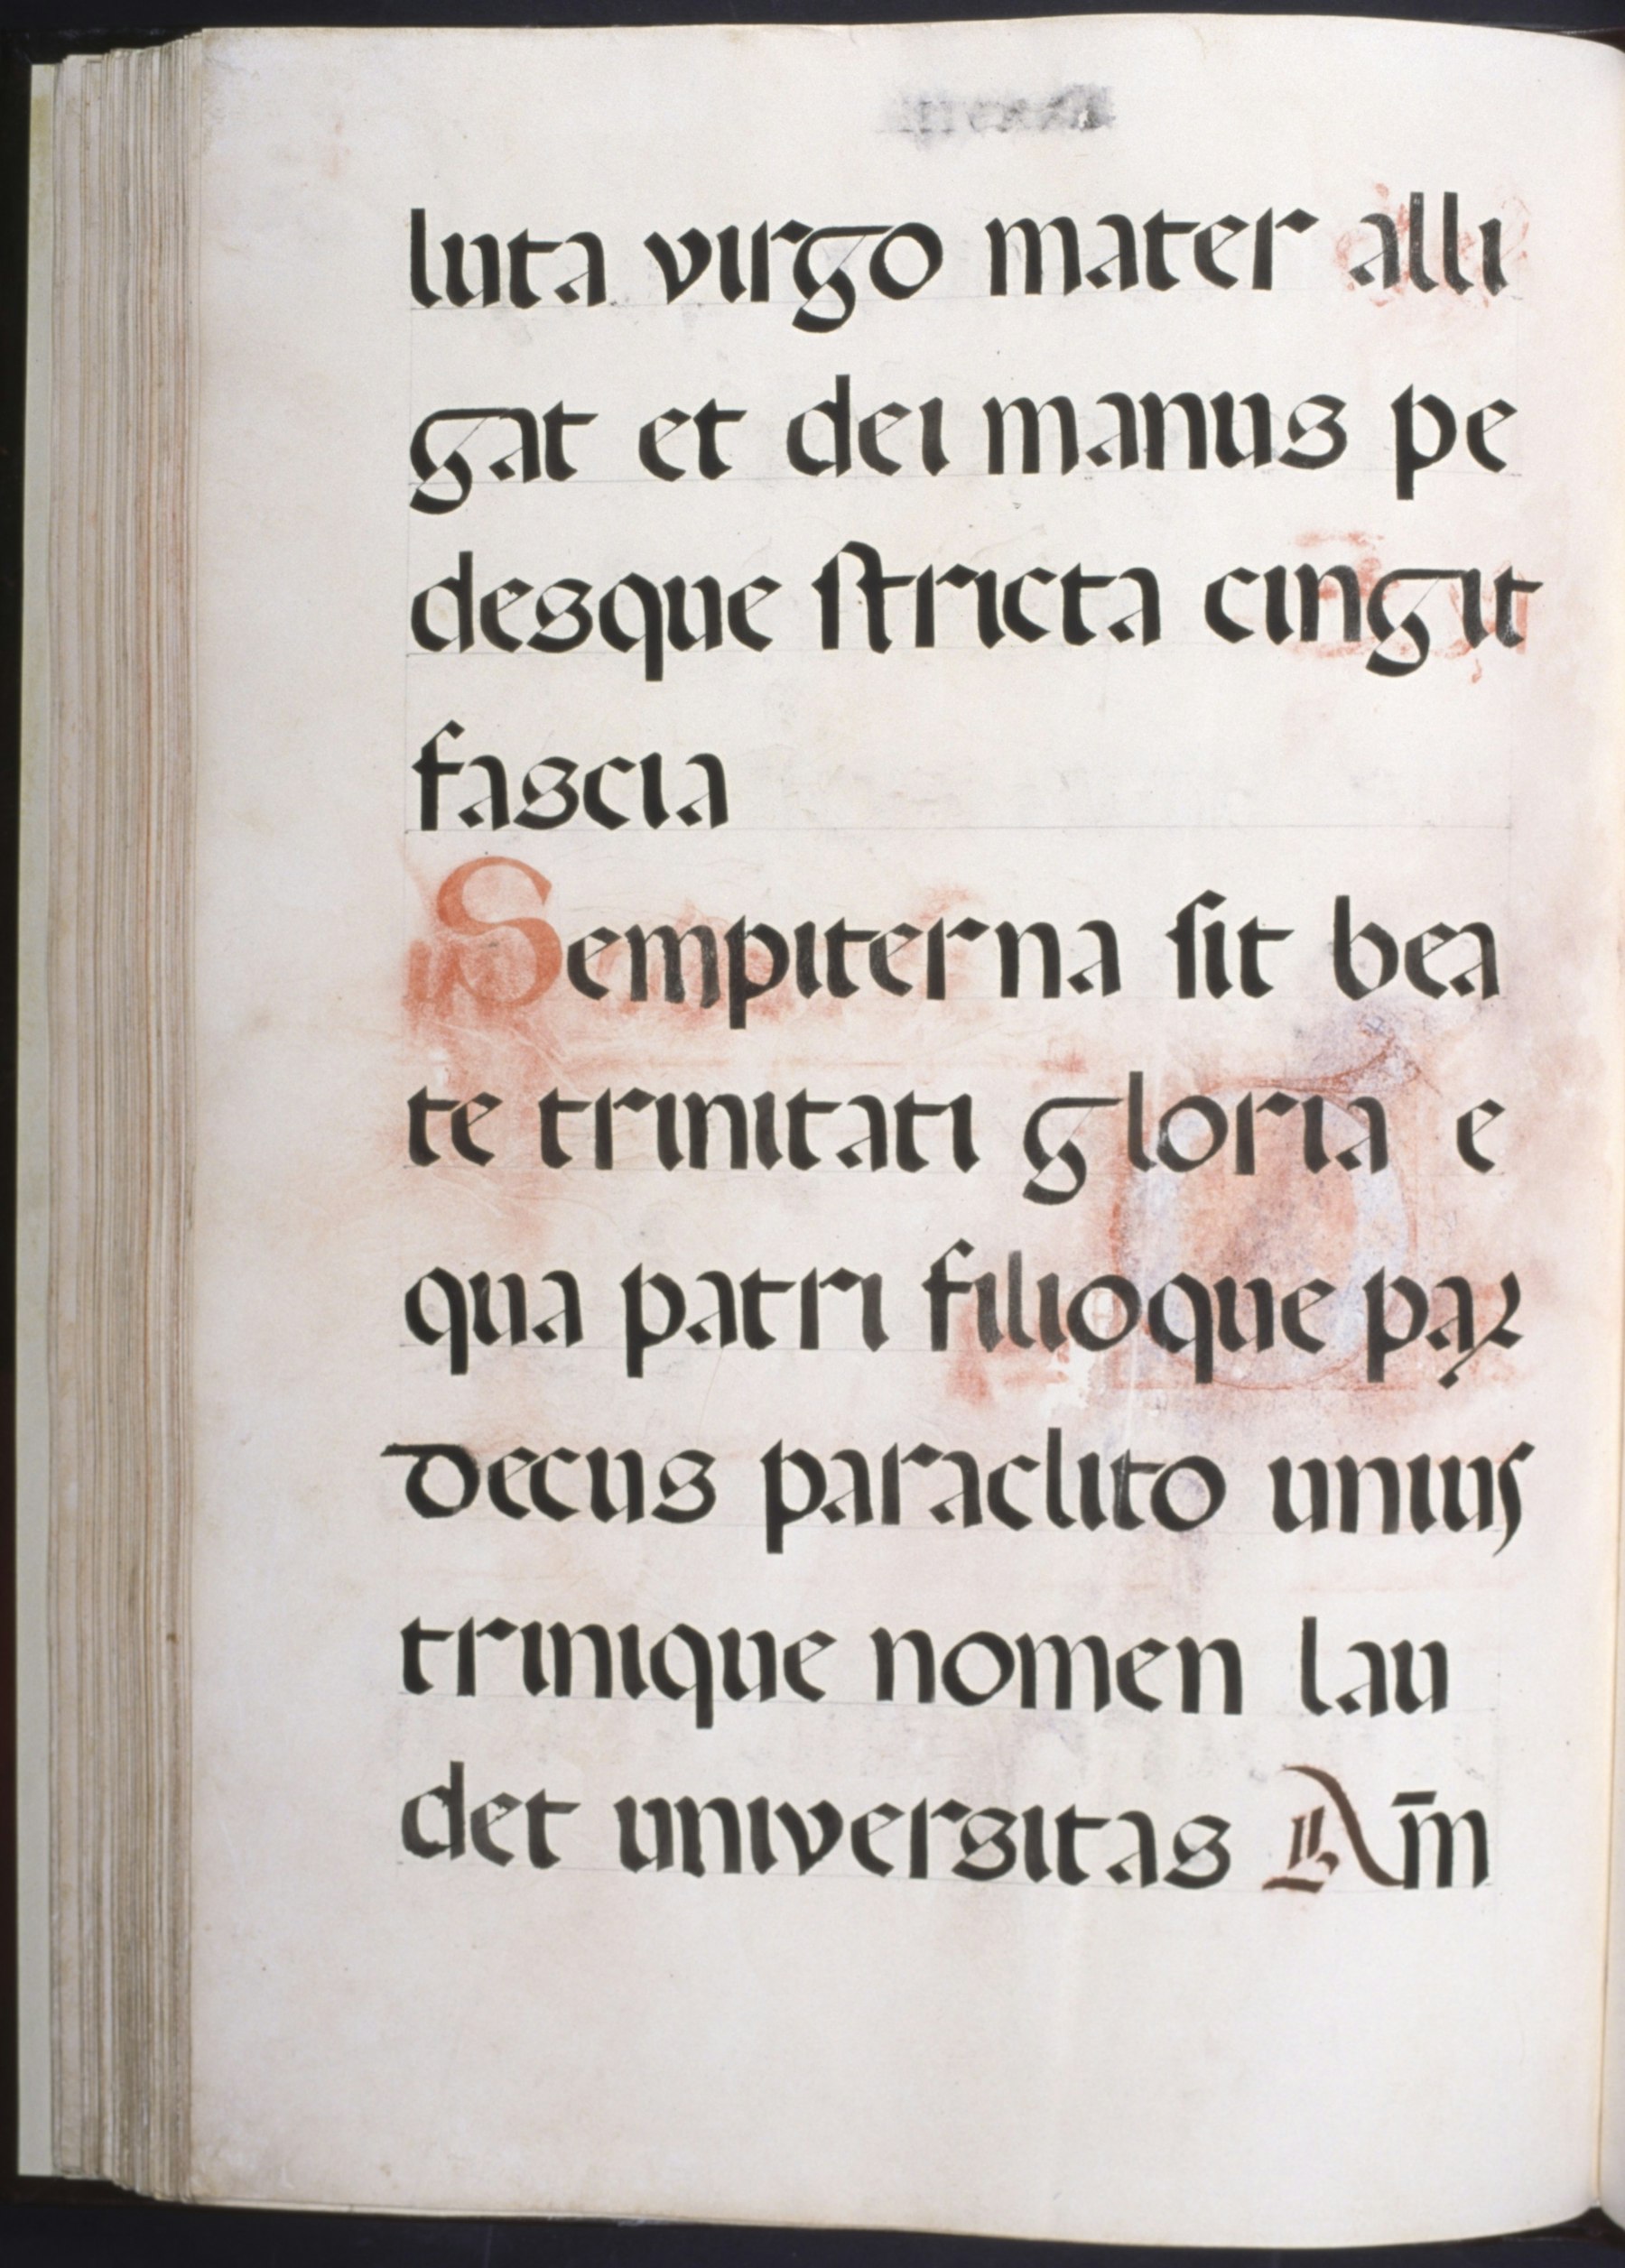 luta virgo mater alli
gat et dei manus pe
desque ſtricta cingit
fascia
Sempiterna ſit bea
te trinitati gloria e
qua patri filioque par
decus paraclito unius
trinique nomen lau
det universitas Am̄